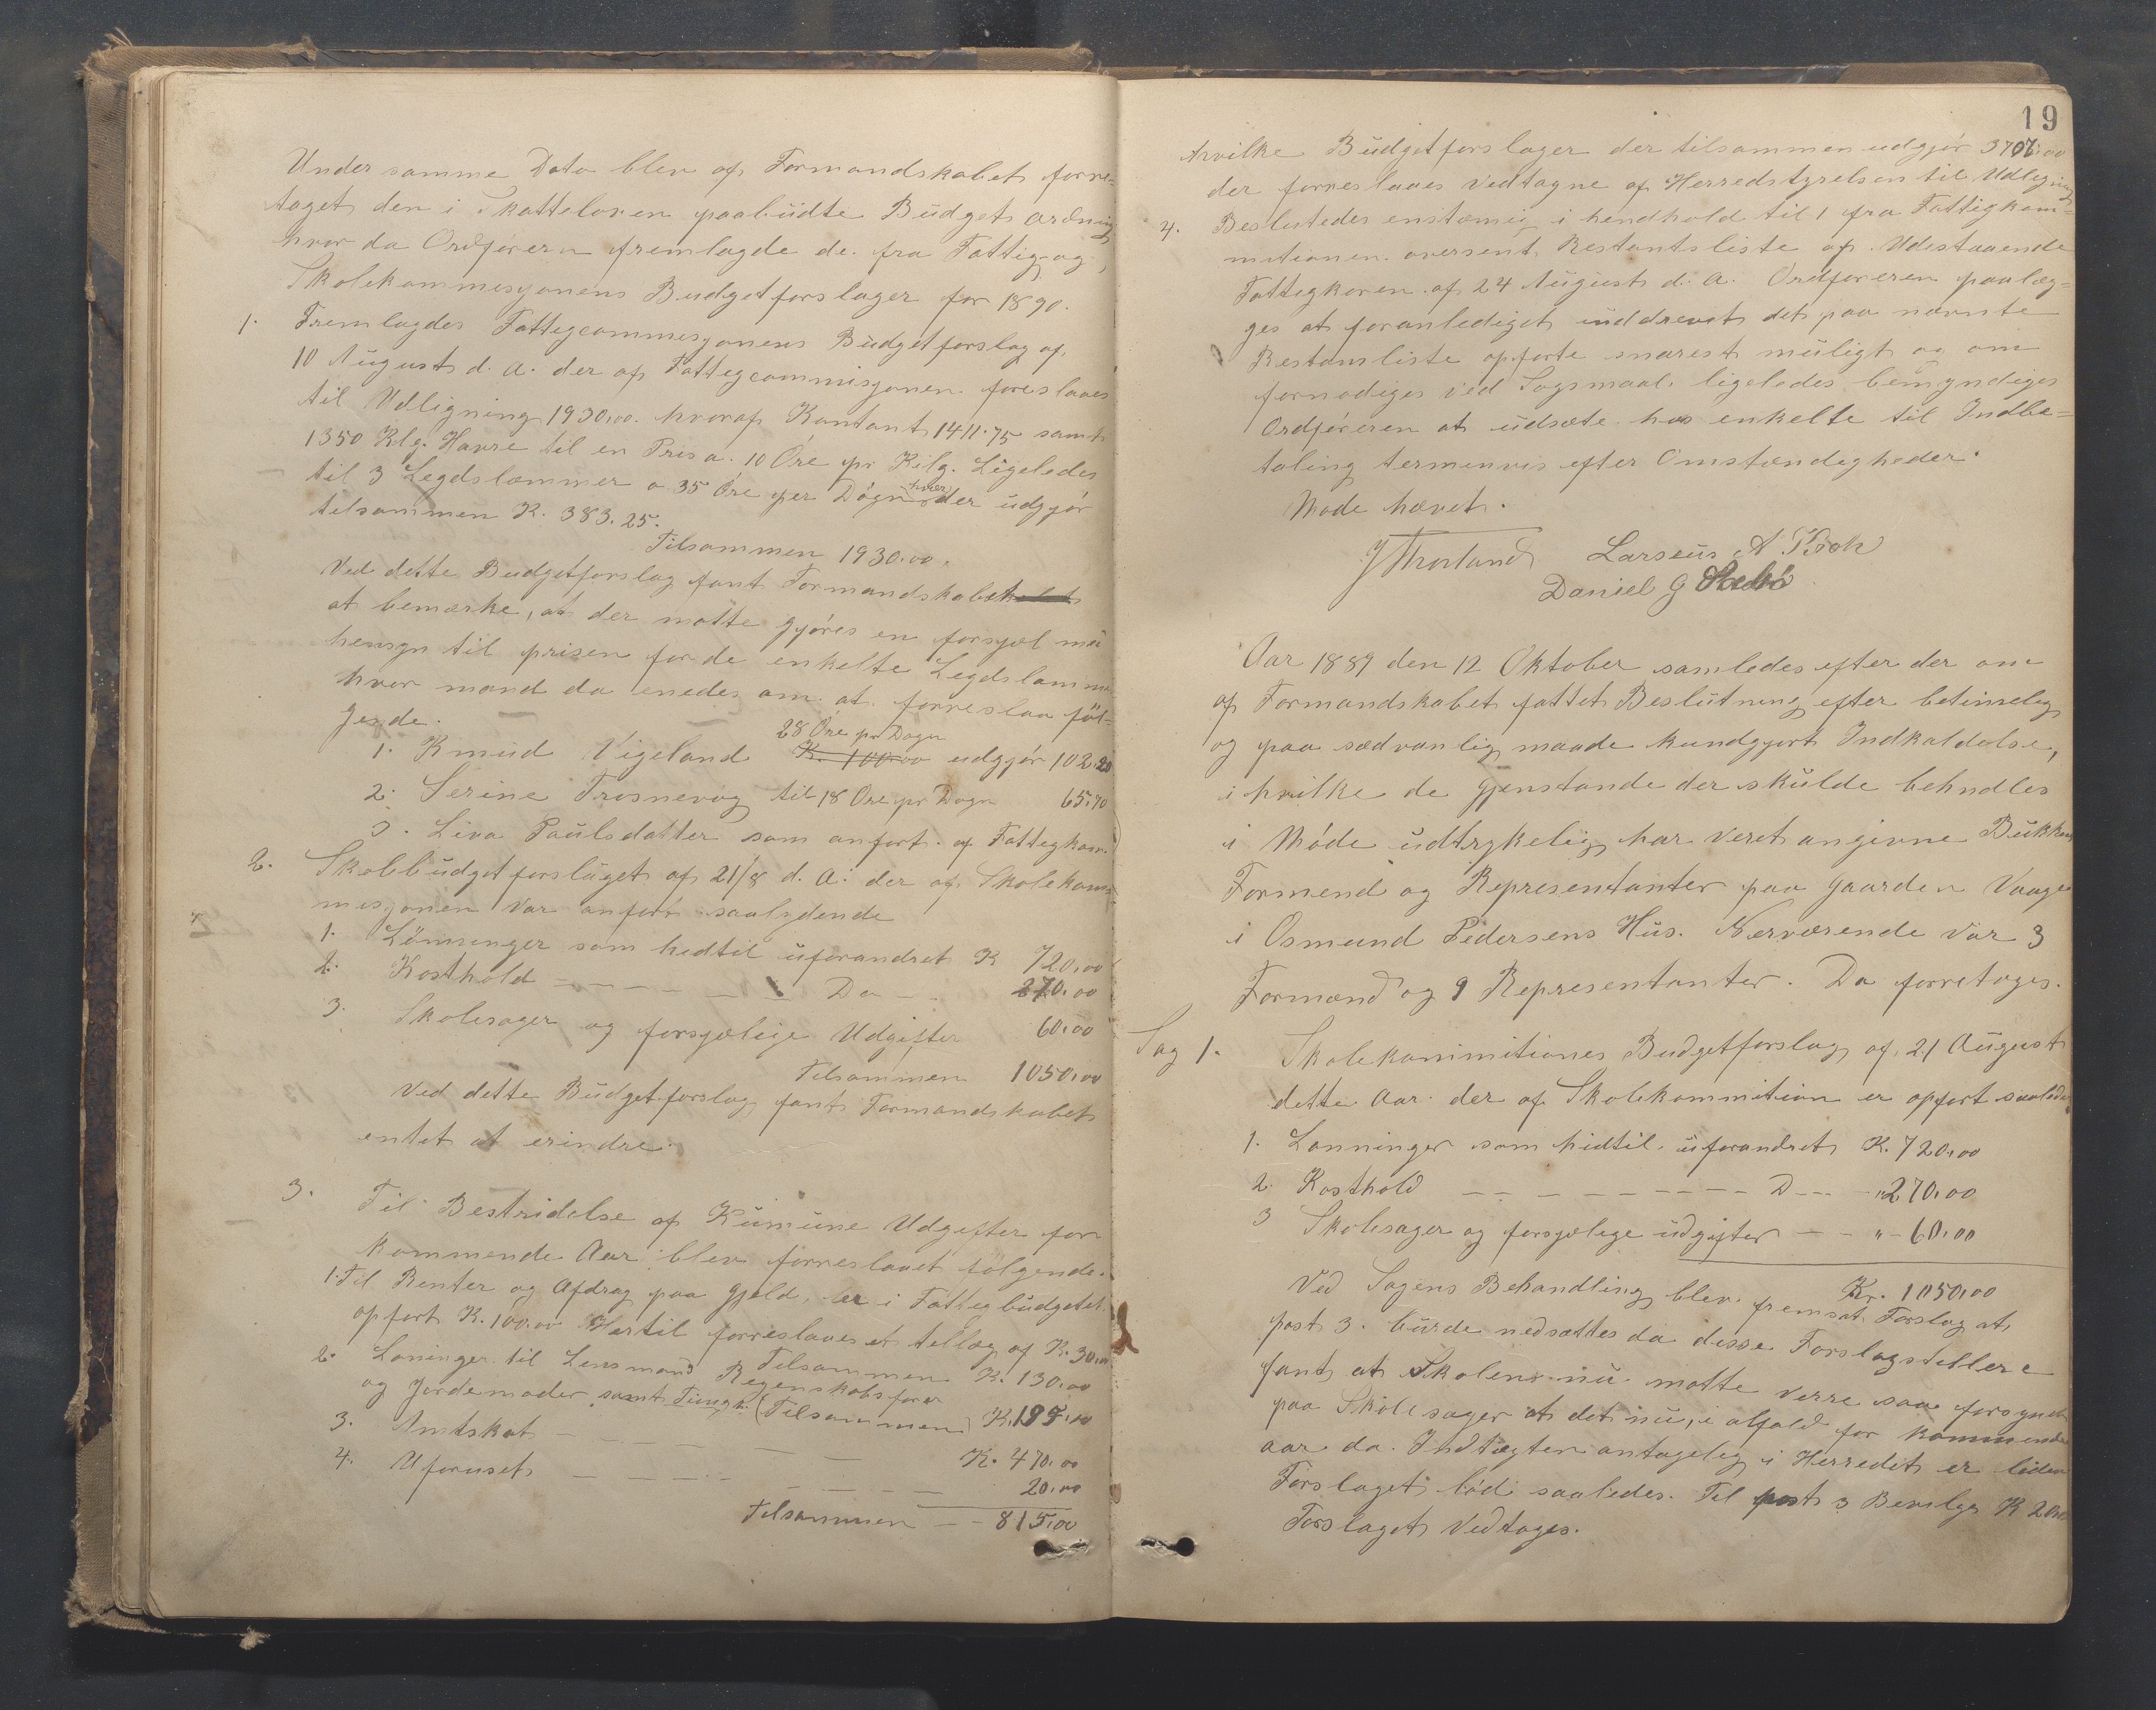 Under samme Dato blev af Formandskabet forre-
taget den i Skatteloven paabüdte Büdget ordning
hvor da Ordføreren fremlagde de fra Fattig og
Skolekommisjonens Budgetforslager for 1890.
1. Fremlagdes Fattigcommesjonens Büdgetforslag af
10 Aügust d. A. der af Fattegcommisjonen foreslaaes
til Udligning 1930,00. hvoraf Kontant 1411.75 samt
1350 Klg. Havre til en Pris a. 10 Øre pr Kilg. Ligeledes
til 3 Legdslammer a 35 Øre per Dögn hver der udgjör
tilsammen K. 383.25.
Tilsammen 1930.00.
Ved dette Budgetforslag fant Formandskabet
at bemærke, at der motte gjöres en forsjæl med
hensyn til prisen for de enkelte Legdslammer
hvor mand da enedes om at forreslaa föl-
gende.
28 Øre pr Dogn
1. Knüd Vigeland K. 100.00 udgjör 102.20
2. Serine Trosnevag til 18 Øre pr Dogn 65.70
3. Liva Paulsdatter som anfort af Fattegkom.
2. Skolebüdgetforslüget af 21/8 d. A. der af Skolekom-
misjonen var anfört saalydende
1. Lönninger som hedtil üforandret K 720,00
2. Kosthold - - - - - - Do - - 270.00
3. Skolesager og forsjælige Udgifter 60.00
Tilsammen 1050,00
Ved dette Büdgetforslag fant Formandskabet
entet at erindre.
3. Til Bestridelse af Kümüne Udgifter for
kommende Aar blev forreslaaet fölgende.
1. Til Renter og Afdrag paa Gjeld, er i Fattegbüdgetet
opfört K. 100.00 Hertil forreslaaes et tellæg af K. 30.00
Tilsammen K. 130.00
2. Loninger til Lensmand Regenskabsfører
og Jordemoder samt Tüngt. (Tilsammen) K. 195,00
3. Amtskat - - - - - K. 470.00
4. Uforuset - - - - - 20.00
Tilsammen - - 815,00
19
Hvilke Büdgetforslager der tilsammen udgjör 3707.00
der forreslaaes Vedtagne af Herredstyrelsen til Udligning
4. Beslutedes enstemig i hendhold til 1 fra Fattigkom-
mitionen oversent Restantsliste af Udestaaende
Fattigkoren af 24 Aügust d. A. Ordføreren paalæg-
ges at foranlediget inddrevet det paa nævnte
Restansliste opførte snarest müligt og om
fornodiges ved Sogsmaal. ligeledes bemyndiges
Ordføreren at üdsæte hos enkelte til Indbe-
taling termenvis efter Omstændegheder.
Møde hævet.
Larseüs A
Daniel G
Aar 1889 den 12 Oktober samledes efter der om
af Formandskabet fattet Beslütning efter betimeleg
og paa sædvanlig maade kundgjort Indkaldelse,
i hvilke de Gjenstande der skülde behndles
i Möde üdtrykelig har veret angivne Bukkens
Formend og Representanter paa Gaarden Vaage
i Osmund Pedersens Hüs. Nerværende Var 3
Formænd og 9 Representanter. Da forretoges.
Sag 1. Skolekommitiones Budgetforslag af 21 Aügust
dette Aar. der af Skolekommition er opfort saaledes
1. Lonninger som hidtil. üforandret K. 720,00
2. Kosthold - - - - - - - - - D - - - " 270,00
3 Skolesager og forsjælege üdgifter - - " - 60,00
Kr. 1050,00
Ved Sagens Behandling blev fremsat Forslag at
post 3. bürde nedsættes da disse Forslagstellere
fant at Skolen nü motte verre saa forsynet
paa Skolesager at det nü, i alfald for kommende
aar da. Indtægten antageleg i Herredet er liden
Forslaget löd saaledes. Til post 3 Bevilges K 20,00
Forslaget Vedtoges.